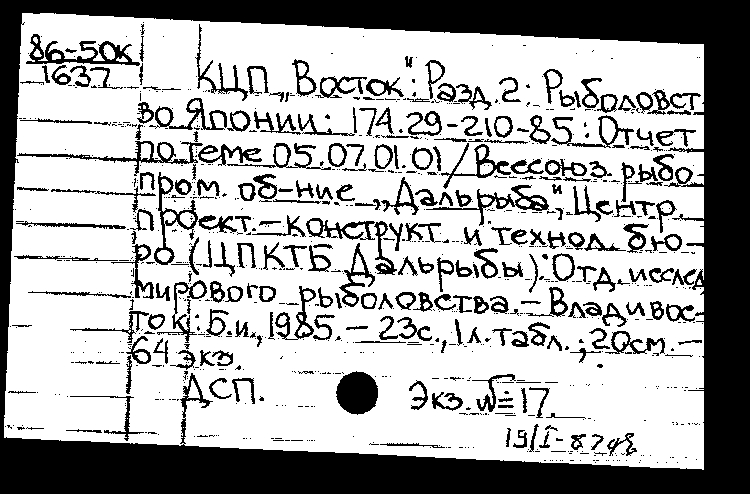 86-50к
1637
КЦП „Восток": Разд. 2: Рыболовст-
во Японии: 174.29-210-85: Отчет
по теме 05.07.01.01 / Всесоюз. рыбо-
пром. об-ние „Дальрыба", Центр.
проект.-конструкт. и технол. бю-
ро (ЦПКТБ Дальрыбы). Отд. исслед.
мирового рыболовства. - Владивос-
ток: Б.и., 1985. - 23с., 1л. табл.; 20см. -
64 экз.
ДСП. Экз. №17.